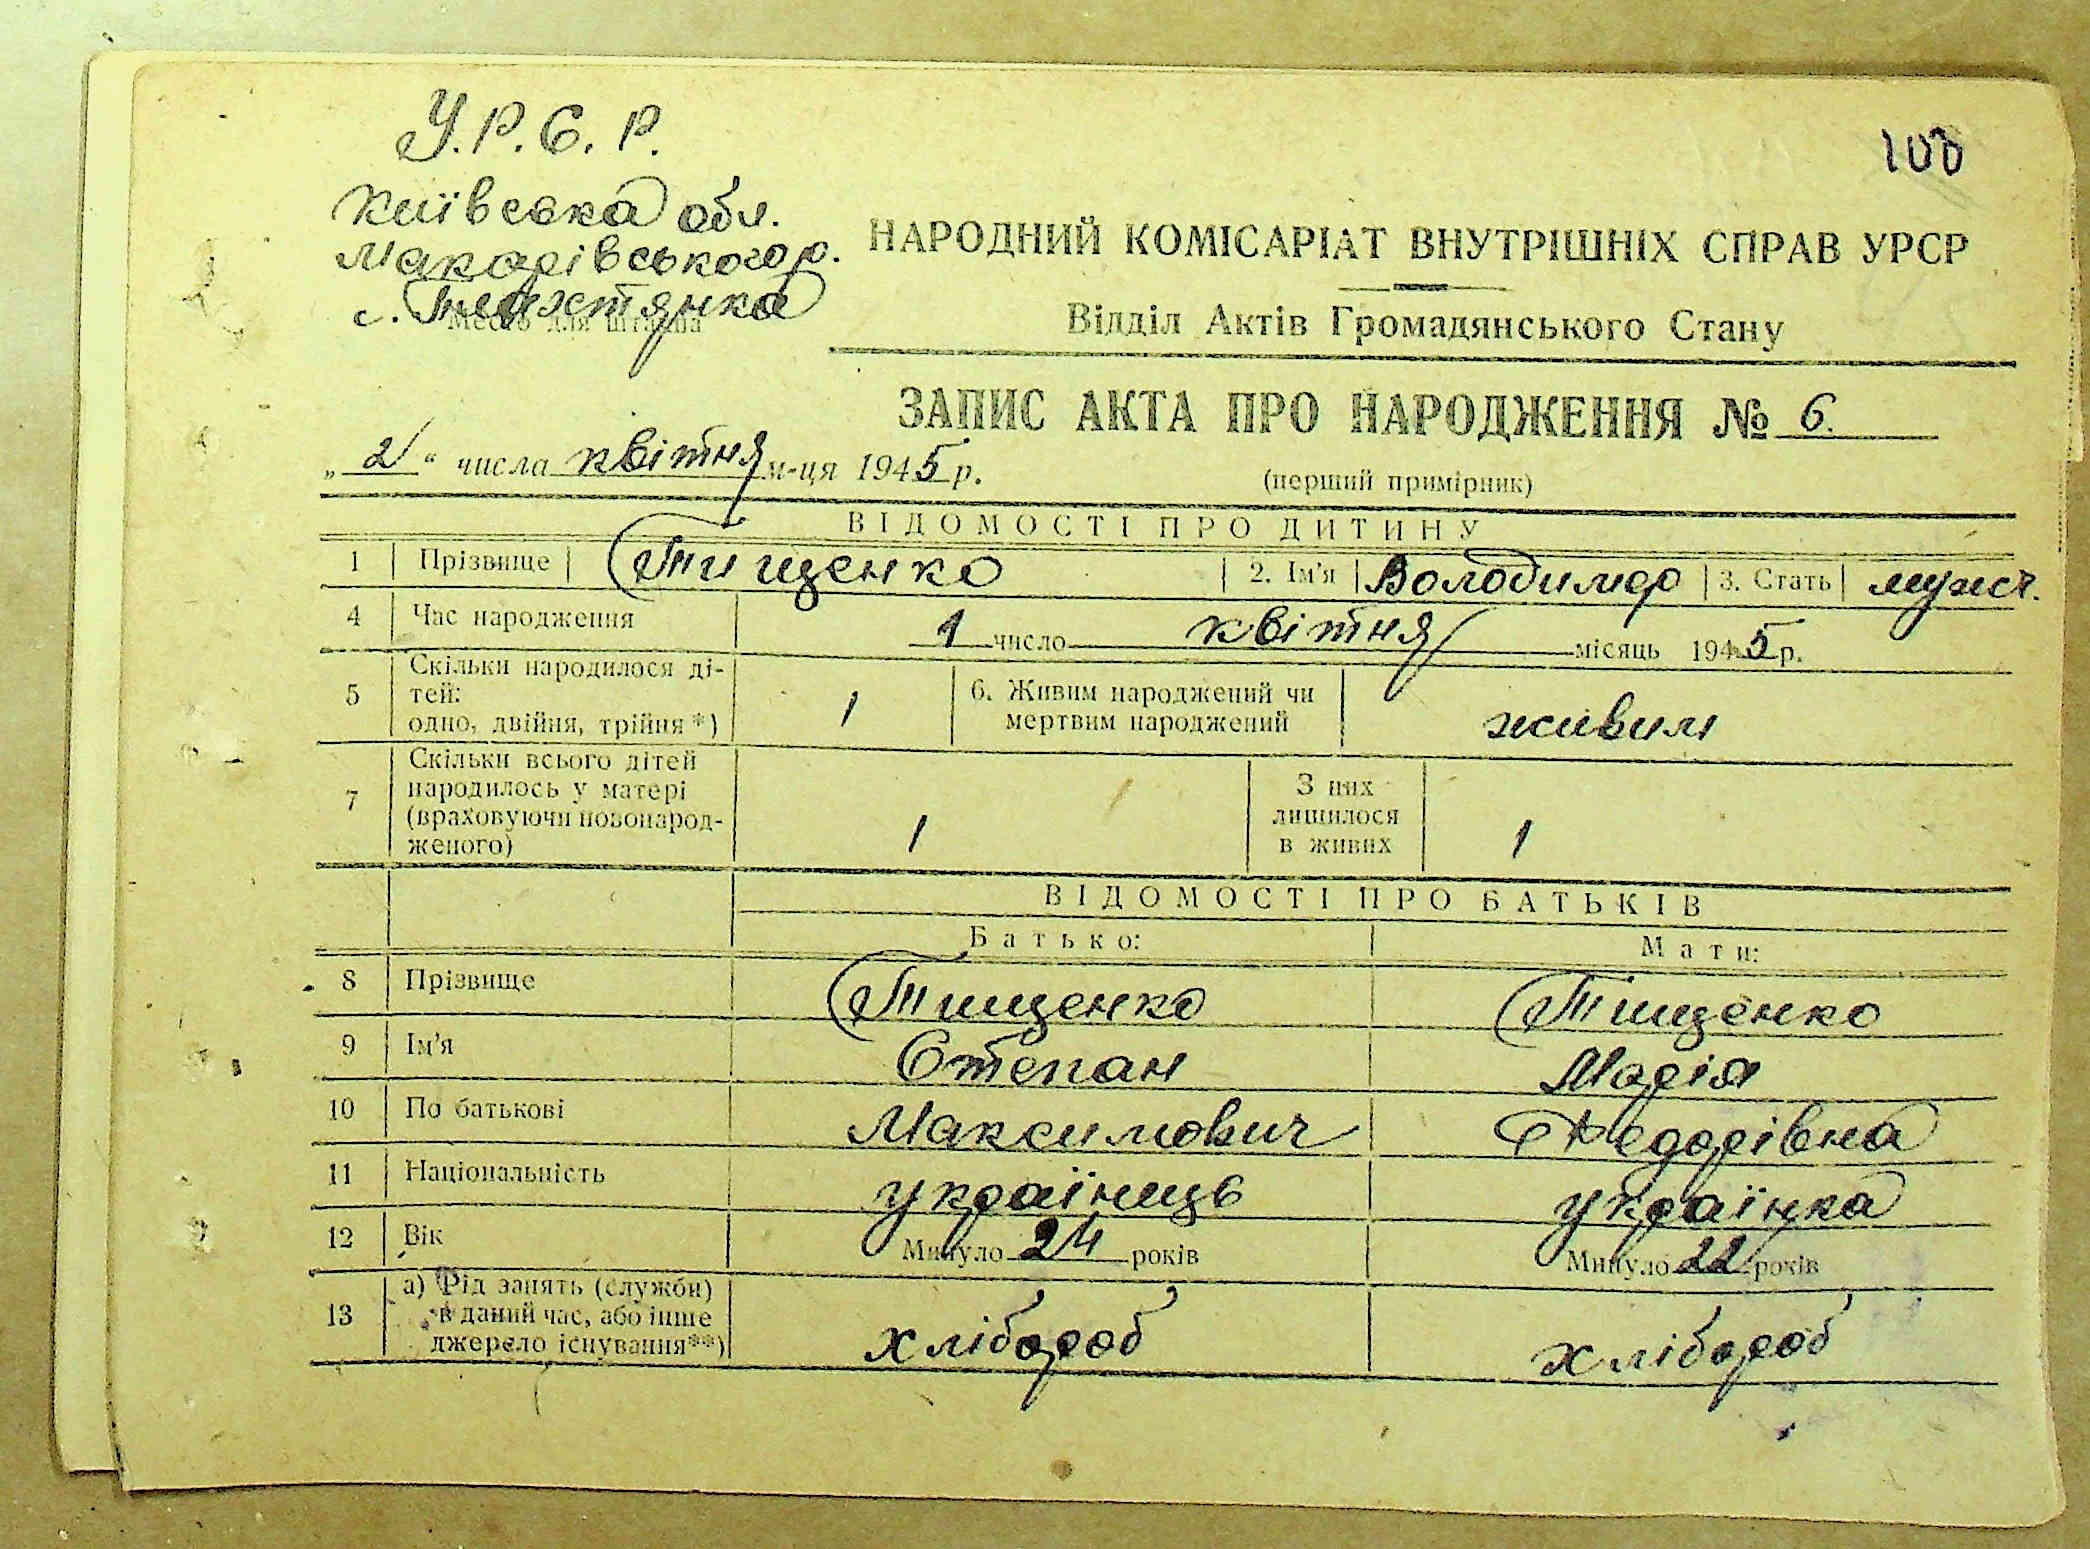 У.Р.С.Р.
100
Київська обл.
Макарівського р.
с. Плахтянка
Місце для штампа
НАРОДНИЙ КОМІСАРІАТ ВНУТРІШНІХ СПРАВ УРСР
Відділ Актів Громадянського Стану
ЗАПИС АКТА ПРО НАРОДЖЕННЯ № 6.
„2“ числа квітня м-ця 1945 р.
(перший примірник)
ВІДОМОСТІ ПРО ДИТИНУ
1 Прізвище Тищенко 2. Ім'я Володимир 3. Стать мужч.
4 Час народження 1 число квітня місяць 1945 р.
5 Скільки народилося ді-
тей:
одно, двійня, трійня*) 1
6. Живим народжений чи
мертвим народжений живим
7 Скільки всього дітей
народилось у матері
(враховуючи новонарод-
женого) 1
З них
лишилося
в живих 1
ВІДОМОСТІ ПРО БАТЬКІВ
Батько: Мати:
8 Прізвище Тищенко Тищенко
9 Ім'я Степан Марія
10 По батькові Максимович Федорівна
11 Національність українець українка
12 Вік Минуло 24 років Минуло 22 років
13 а) Рід занять (служби)
в даний час, або інше
джерело існування**) хлібороб хлібороб